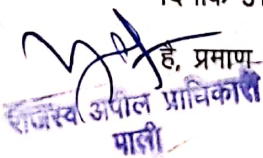 दिनांक
है, प्रमाण
राजस्व अपील प्राधिकारी
पाली